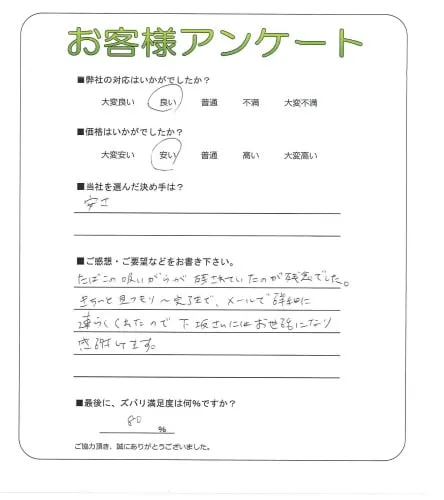 お客様アンケート
■弊社の対応はいかがでしたか？
大変良い 良い 普通 不満 大変不満
■価格はいかがでしたか？
大変安い 安い 普通 高い 大変高い
■当社を選んだ決め手は？
安さ
■ご感想・ご要望などをお書き下さい。
たばこの吸いがらが残されていたのが残念でした。
きちっと見つもり〜完了まで、メールで詳細に
連らくくれたので下坂さんにはお世話になり
感謝してます。
■最後に、ズバリ満足度は何%ですか？
80 %
ご協力頂き、誠にありがとうございました。